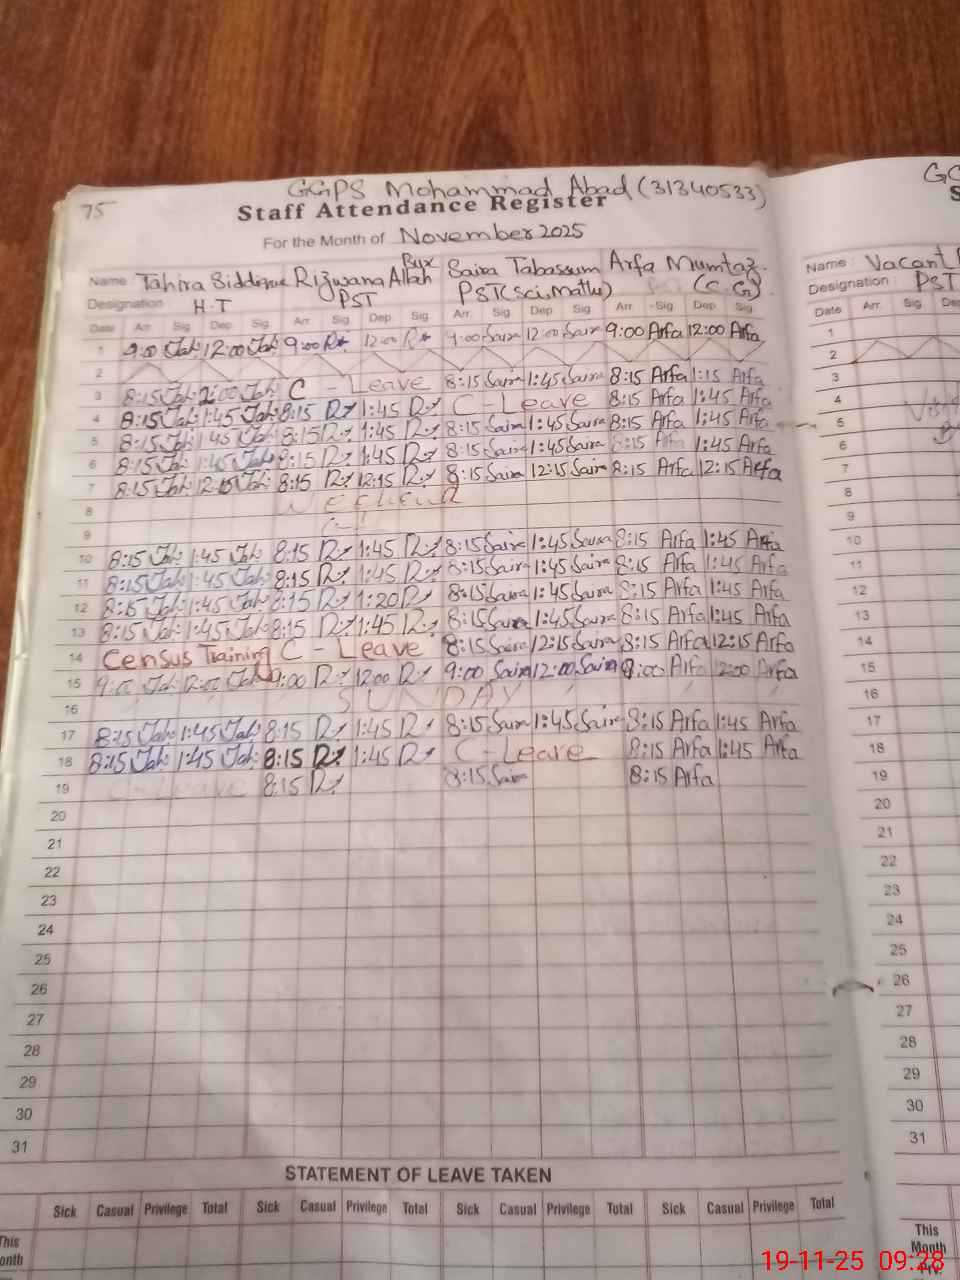 75
GGPS Mohammad Abad (31340533)
Staff Attendance Register
For the Month of November 2025
Name Tahira Siddique Rizwana Allah Bux Saira Tabassum Arfa Mumtaz
Designation H.T PST PST(Sci, Maths) (C.G)
Date Arr Sig Dep Sig Arr. Sig Dep Sig Arr. Sig Dep Sig Arr Sig Dep Sig
1 9:00 Tah: 12:00 Tah: 9:00 R 12:00 R 9:00 Saira 12:00 Saira 9:00 Arfa 12:00 Arfa
2
3 8:15 Tah: 2:00 Tah: C - Leave 8:15 Saira 1:45 Saira 8:15 Arfa 1:15 Arfa
4 8:15 Tah: 1:45 Tah: 8:15 R 1:45 R C - Leave 8:15 Arfa 1:45 Arfa
5 8:15 Tah: 1:45 Tah: 8:15 R 1:45 R 8:15 Saira 1:45 Saira 8:15 Arfa 1:45 Arfa
6 8:15 Tah: 1:45 Tah: 8:15 R 1:45 R 8:15 Saira 1:45 Saira 8:15 Arfa 1:45 Arfa
7 8:15 Tah: 12:15 Tah: 8:15 R 12:15 R 8:15 Saira 12:15 Saira 8:15 Arfa 12:15 Arfa
8 Weekend
9
10 8:15 Tah: 1:45 Tah: 8:15 R 1:45 R 8:15 Saira 1:45 Saira 8:15 Arfa 1:45 Arfa
11 8:15 Tah: 1:45 Tah: 8:15 R 1:45 R 8:15 Saira 1:45 Saira 8:15 Arfa 1:45 Arfa
12 8:15 Tah: 1:45 Tah: 8:15 R 1:20 R 8:15 Saira 1:45 Saira 8:15 Arfa 1:45 Arfa
13 8:15 Tah: 1:45 Tah: 8:15 R 1:45 R 8:15 Saira 1:45 Saira 8:15 Arfa 1:45 Arfa
14 Census Training C - Leave 8:15 Saira 12:15 Saira 8:15 Arfa 12:15 Arfa
15 9:00 Tah 12:00 Tah 9:00 R 12:00 R 9:00 Saira 12:00 Saira 9:00 Arfa 12:00 Arfa
16 SUNDAY
17 8:15 Tah: 1:45 Tah: 8:15 R 1:45 R 8:15 Saira 1:45 Saira 8:15 Arfa 1:45 Arfa
18 8:15 Tah: 1:45 Tah: 8:15 R 1:45 R C - Leave 8:15 Arfa 1:45 Arfa
19 C - Leave 8:15 R 8:15 Saira 8:15 Arfa
20
21
22
23
24
25
26
27
28
29
30
31
STATEMENT OF LEAVE TAKEN
Sick Casual Privilege Total Sick Casual Privilege Total Sick Casual Privilege Total Sick Casual Privilege Total
This
onth
GG
S
Name : Vacant
Designation PST
Date Arr. Sig Dep
1
2
3
4
5
6
7
8
9
10
11
12
13
14
15
16
17
18
19
20
21
22
23
24
25
26
27
28
29
30
31
This
Month
Prv.
19-11-25 09:28